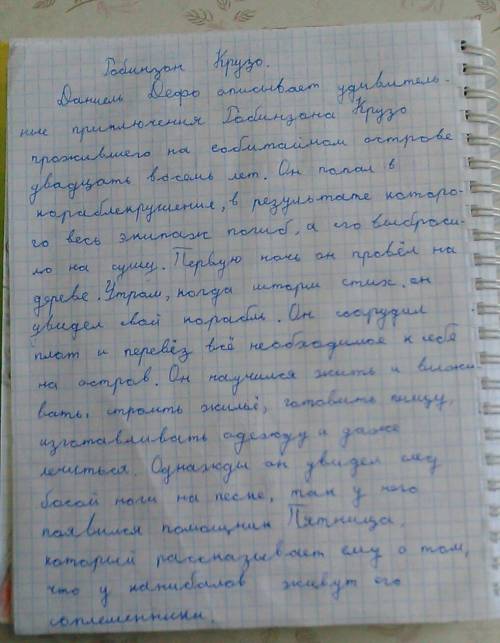 Робинзон Крузо.
Даниель Дефо описывает удивитель-
ные приключения Робинзона Крузо
прожившего на обитаймом острове
двадцать восемь лет. Он попал в
кораблекрушения, в результате которо-
го весь экипаж погиб, а его выброси-
ло на сушу. Первую ночь он провёл на
дереве. Утром, когда шторм стих, он
увидел свой корабль. Он соорудил
плот и перевёз всё необходимое к себе
на остров. Он научился жить и выжи
вать, строить жильё, готовить пищу,
изготавливать одежду и даже
лечиться. Однажды он увидел след
босой ноги на песке, так у него
появился помощник Пятница,
который рассказывает ему о том,
что у канибалов живут его
соплеменники.